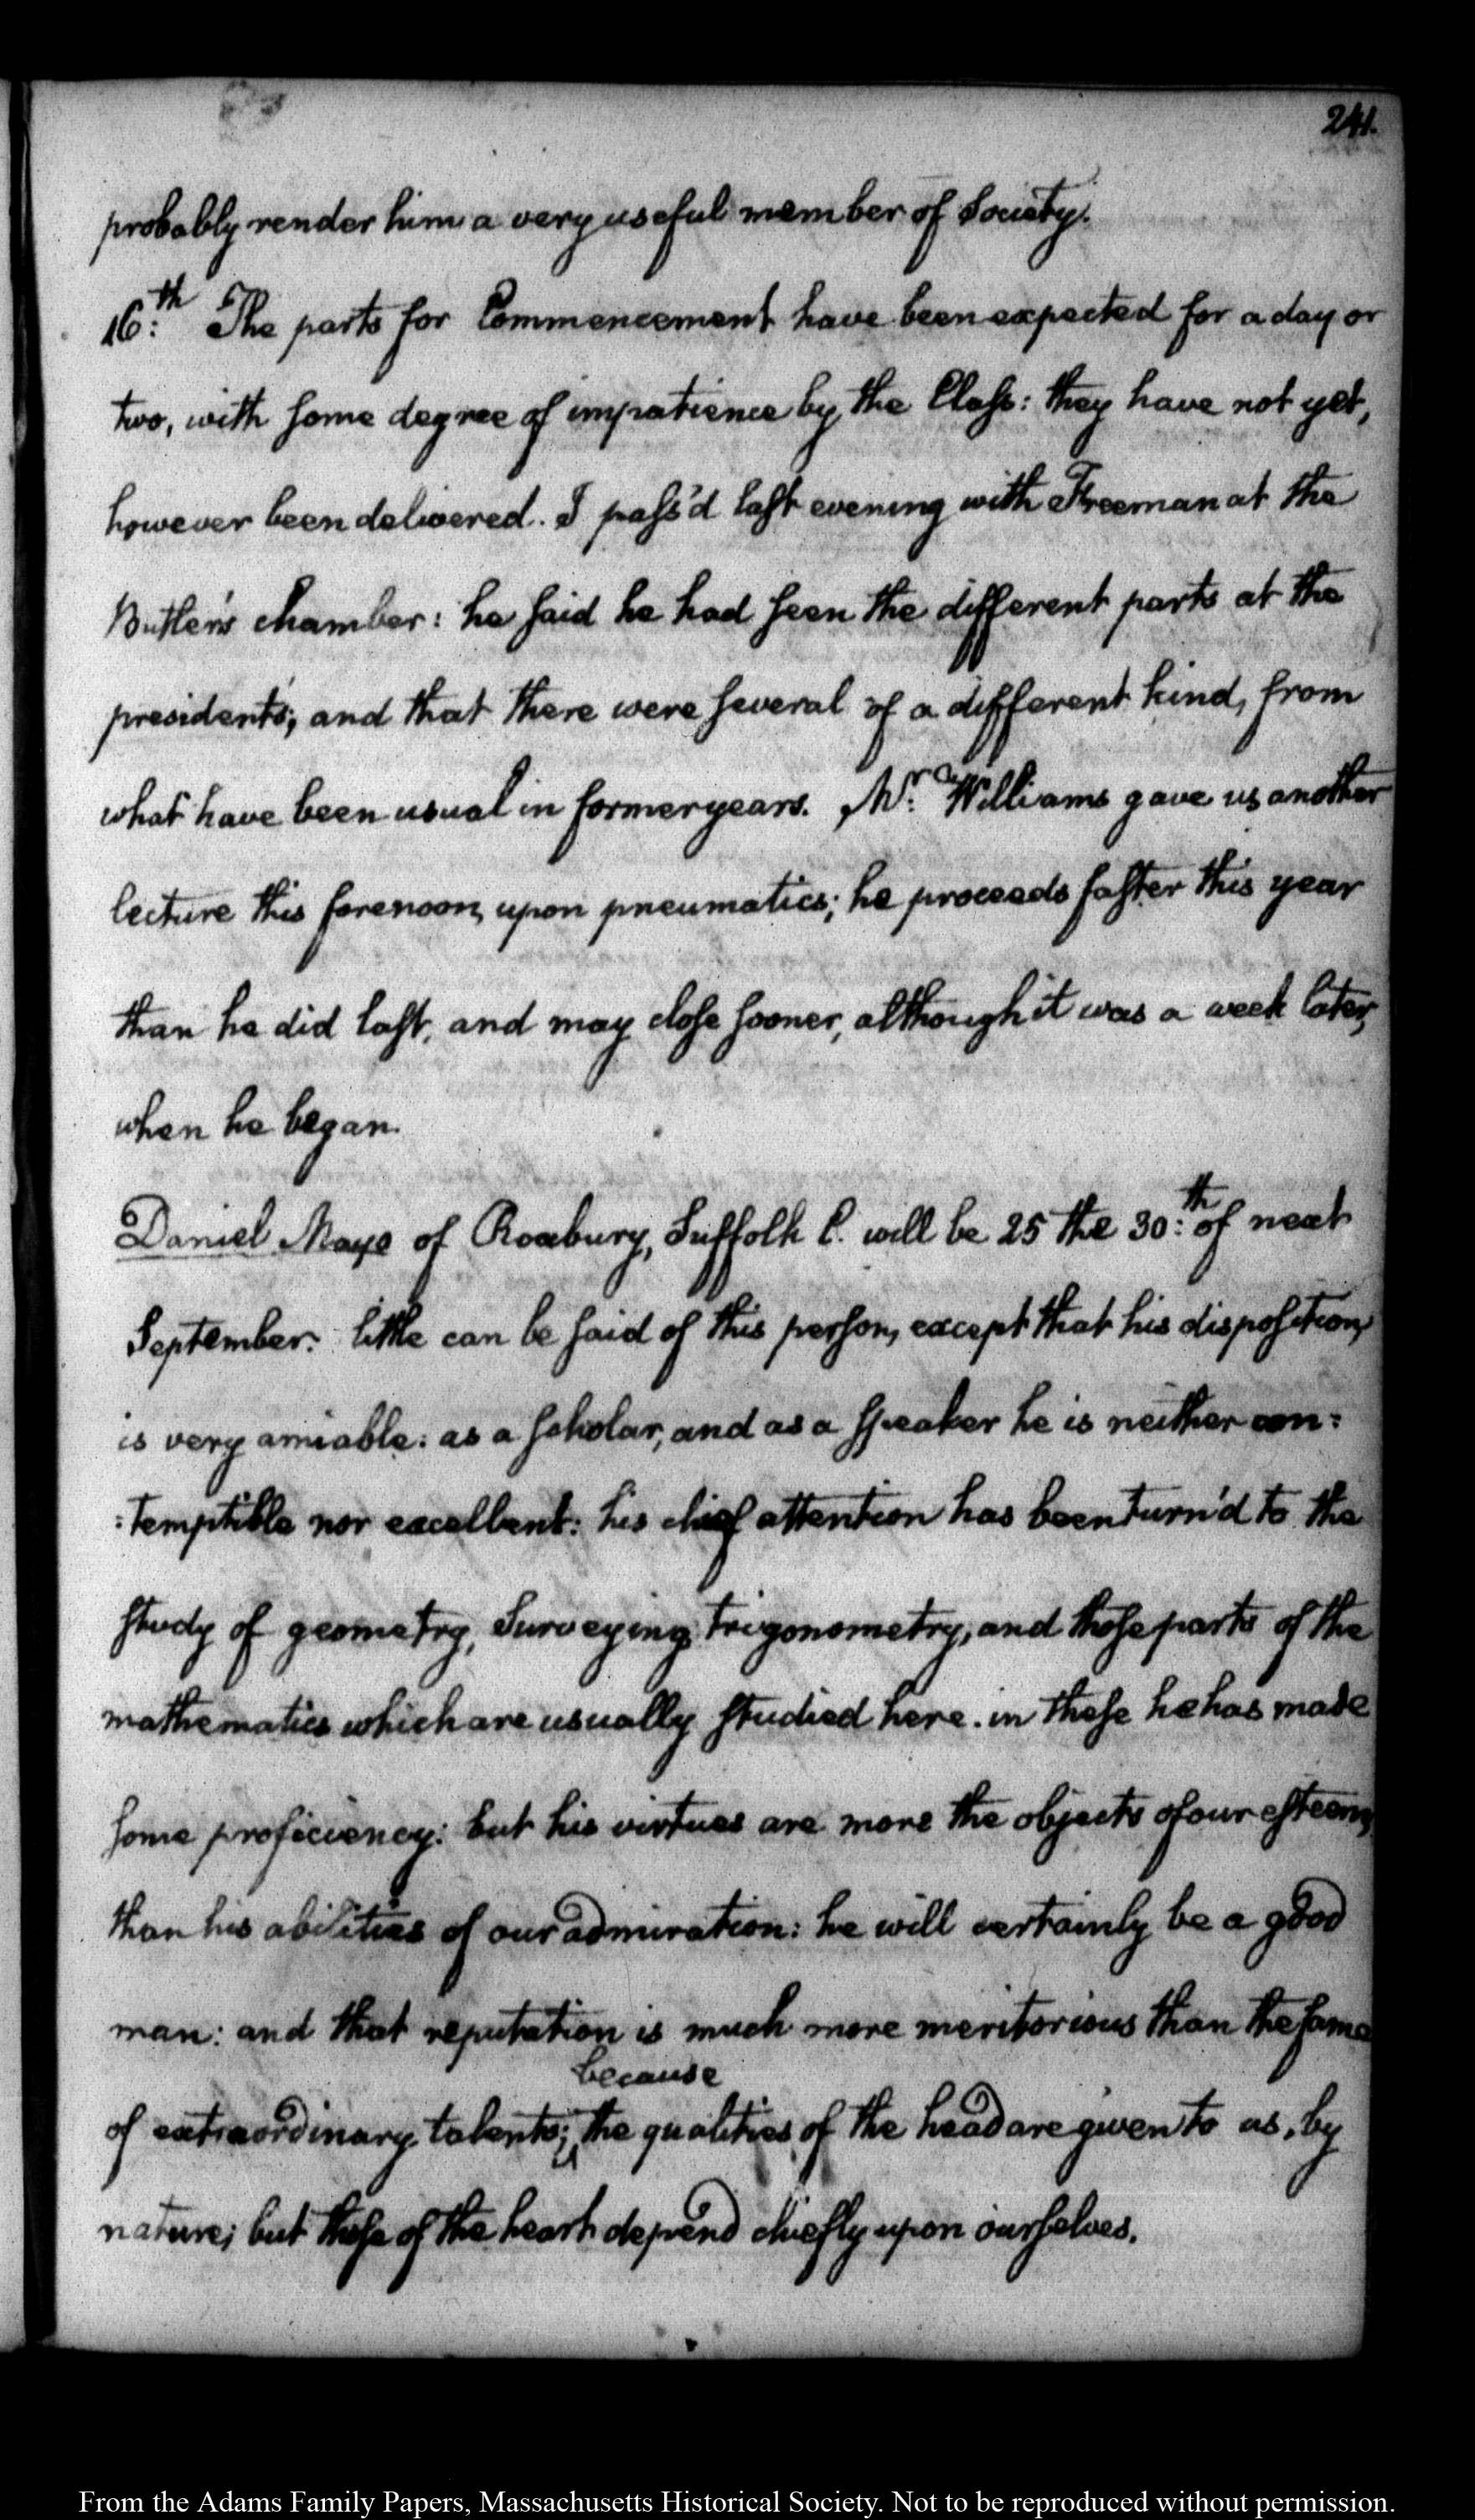 241.
probably render him a very useful member of Society.
16:th The parts for Commencement have been expected for a day or
two, with some degree of impatience by the Class: they have not yet,
however been delivered. I pass'd last evening with Freeman at the
Butler's chamber: he said he had seen the different parts at the
president's; and that there were several of a different kind, from
what have been usual in former years. Mr: Williams gave us another
lecture this forenoon, upon pneumatics; he proceeds faster this year
than he did last, and may close sooner, although it was a week later,
when he began.
Daniel Mayo of Roxbury, Suffolk C. will be 25 the 30:th of next
September. little can be said of this person, except that his disposition,
is very amiable: as a scholar, and as a speaker he is neither con:
:temptible nor excellent: his chief attention has been turn'd to the
study of geometry, Surveying, trigonometry, and those parts of the
mathematics which are usually studied here. in these he has made
some proficiency: but his virtues are more the objects of our esteem,
than his abilities of our admiration: he will certainly be a good
man: and that reputation is much more meritorious than the fame
because
of extraordinary talents; the qualities of the head are given to us, by
nature; but those of the heart depend chiefly upon ourselves.
From the Adams Family Papers, Massachusetts Historical Society. Not to be reproduced without permission.